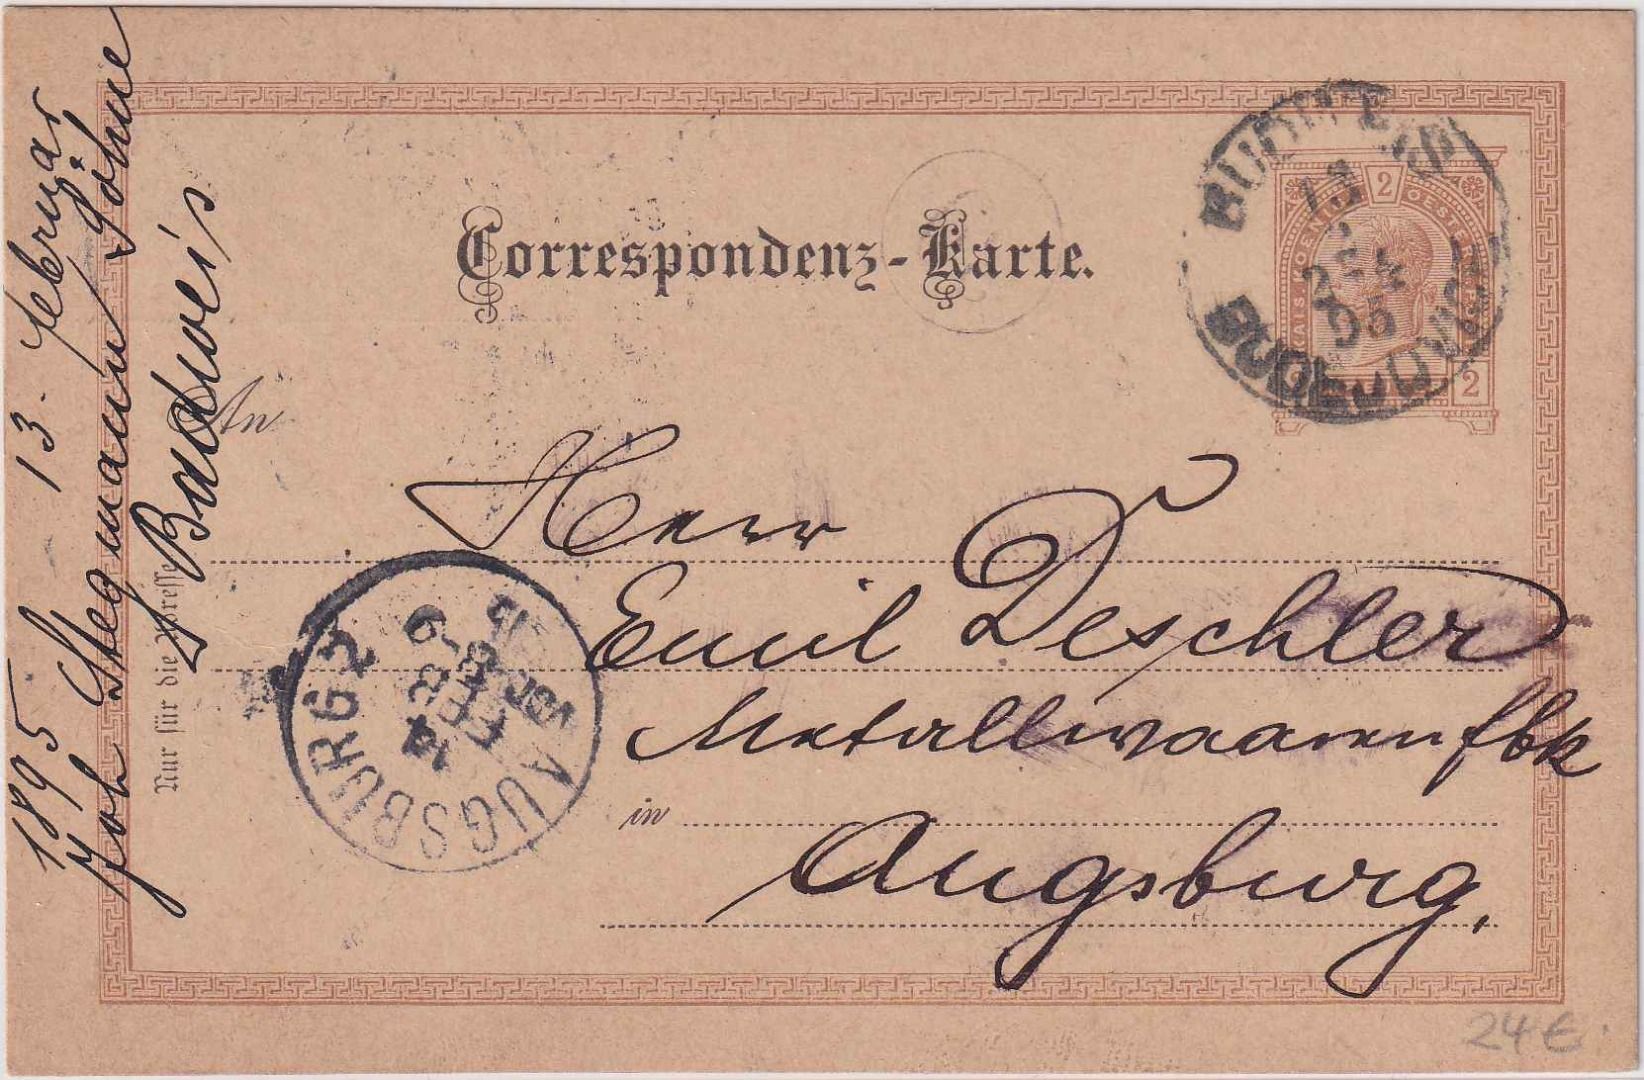 Correspondenz-Karte.
An
Herr
Emil Deschler
Metallwaarenfbk
in
Augsburg.
Nur für die Adresse
1895 13. Februar
Joh Stegmann Söhne
Budweis
BUDWEIS
13
2
95
BUDĚJOVICE
2
2
2
AUGSBURG 2
14
FEB
8-9
VOR
95
24 €.